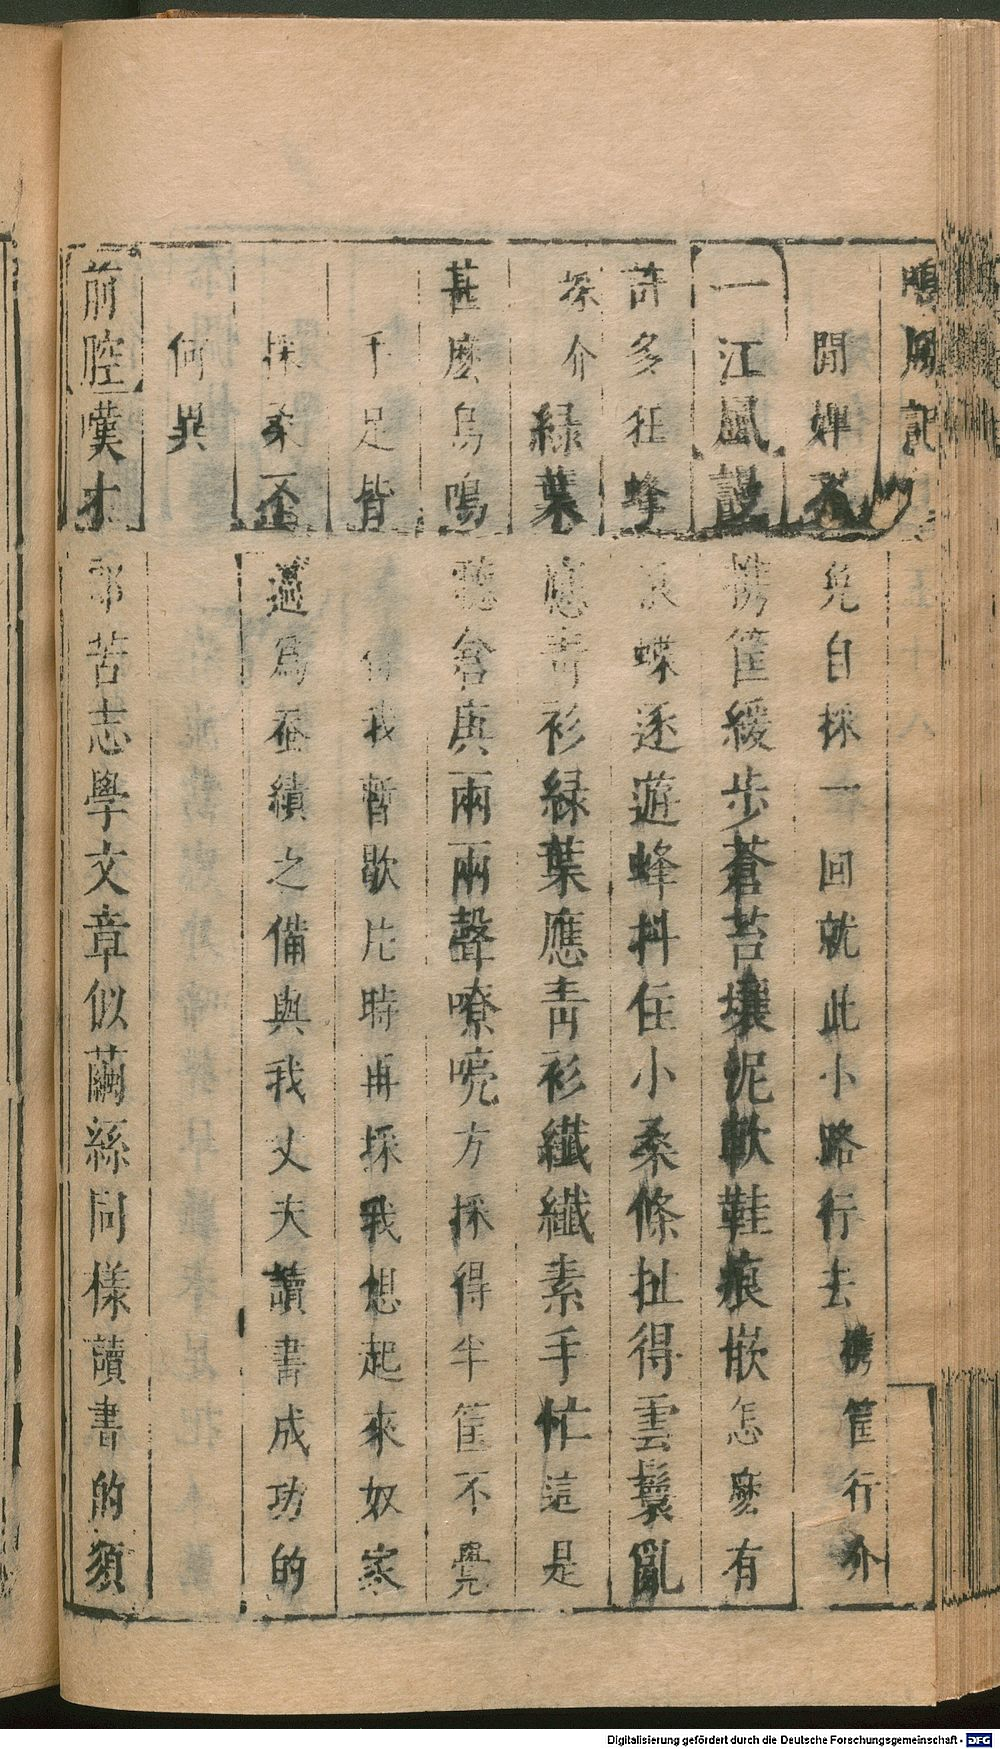 鳴鳳記
閒嬋不免自採一回就此小路行去 攜筐行介
一江風設攜筐緩步蒼苔壤泥軟鞋痕嵌怎麼有
許多狂蜂浪蝶逐遊蜂抖住小桑條扯得雲鬟亂
採介 綠葉應青衫綠葉應青衫纖纖素手忙這是
甚麼鳥鳴聽倉庚兩兩聲嘹喨方採得半筐不覺
手足皆 我暫歇片時再採我想起來奴家
採柔 過為蚕績之備與我丈夫讀書成功的
何異
前腔嘆才郎苦志學文章似繭絲同樣讀書的須
Digitalisierung gefördert durch die Deutsche Forschungsgemeinschaft - DFG